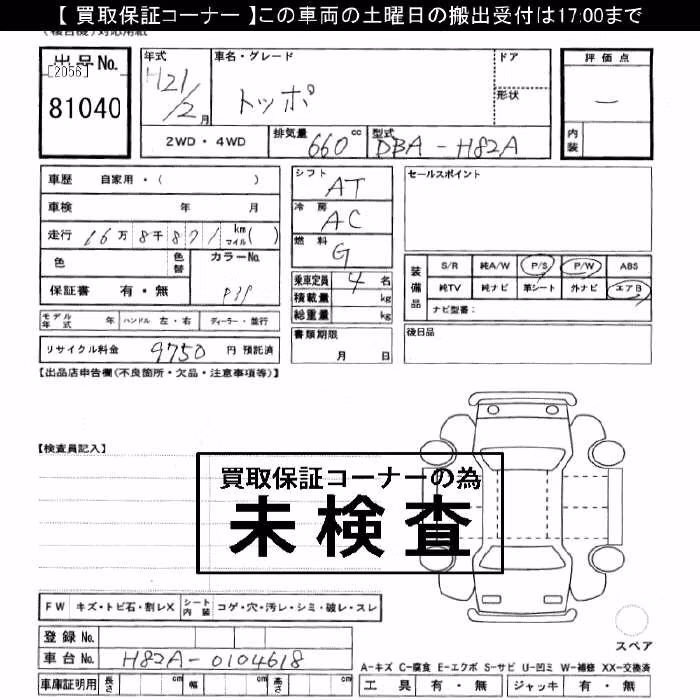 【 買取保証コーナー 】この車両の土曜日の搬出受付は17:00まで
出品No. 年式 車名・グレード ドア 評価点
[2056] H21/2月 トッポ 形状 ー
81040 内装
2WD・4WD 排気量 660cc 型式 DBA-H82A
車歴 自家用・( ) シフト AT セールスポイント
車検 年 月 冷房 AC
走行 16万8千871 km マイル( ) 燃料 G
色 色替 カラーNo. 装備品 S/R 純A/W P/S P/W ABS
保証書 有・無 P39 乗車定員 4名 純TV 純ナビ 革シート 外ナビ エアB
積載量 kg ナビ型番:
モデル年式 年 ハンドル 左・右 ディーラー・並行 総重量 kg
リサイクル料金 9750 円 預託済 書類期限 月 日 後日品
【出品店申告欄(不良箇所・欠品・注意事項等)】
【検査員記入】
買取保証コーナーの為
未検査
FW キズ・トビ石・割レX シート内装 コゲ・穴・汚レ・シミ・破レ・スレ
登録No. スペア
車台No. H82A-0104618
A-キズ C-腐食 E-エクボ S-サビ U-凹ミ W-補修 XX-交換済
車庫証明用 長さ cm 幅 cm 高さ cm 工具 有・無 ジャッキ 有・無